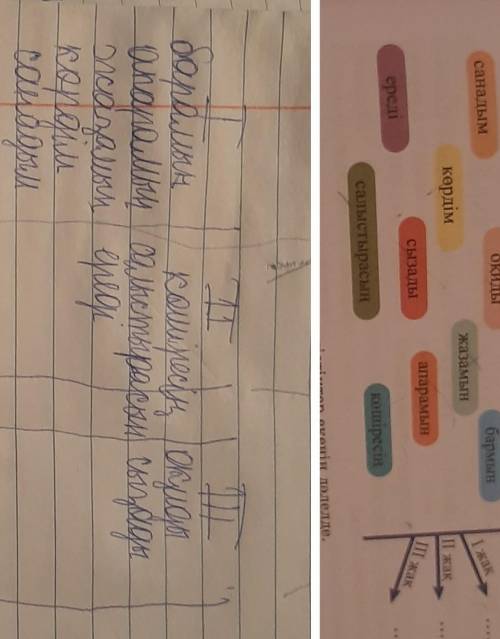 I II III
барамын көшіресің оқиды
апарамын салыстырасың сызады
жазамын ереді
көрдім
санадым
санадым оқиды бармын
көрдім жазамын
ереді сызады апарамын
салыстырасың көшіресің
I жақ ...
II жақ ...
III жақ ..
екенін дәлелде.